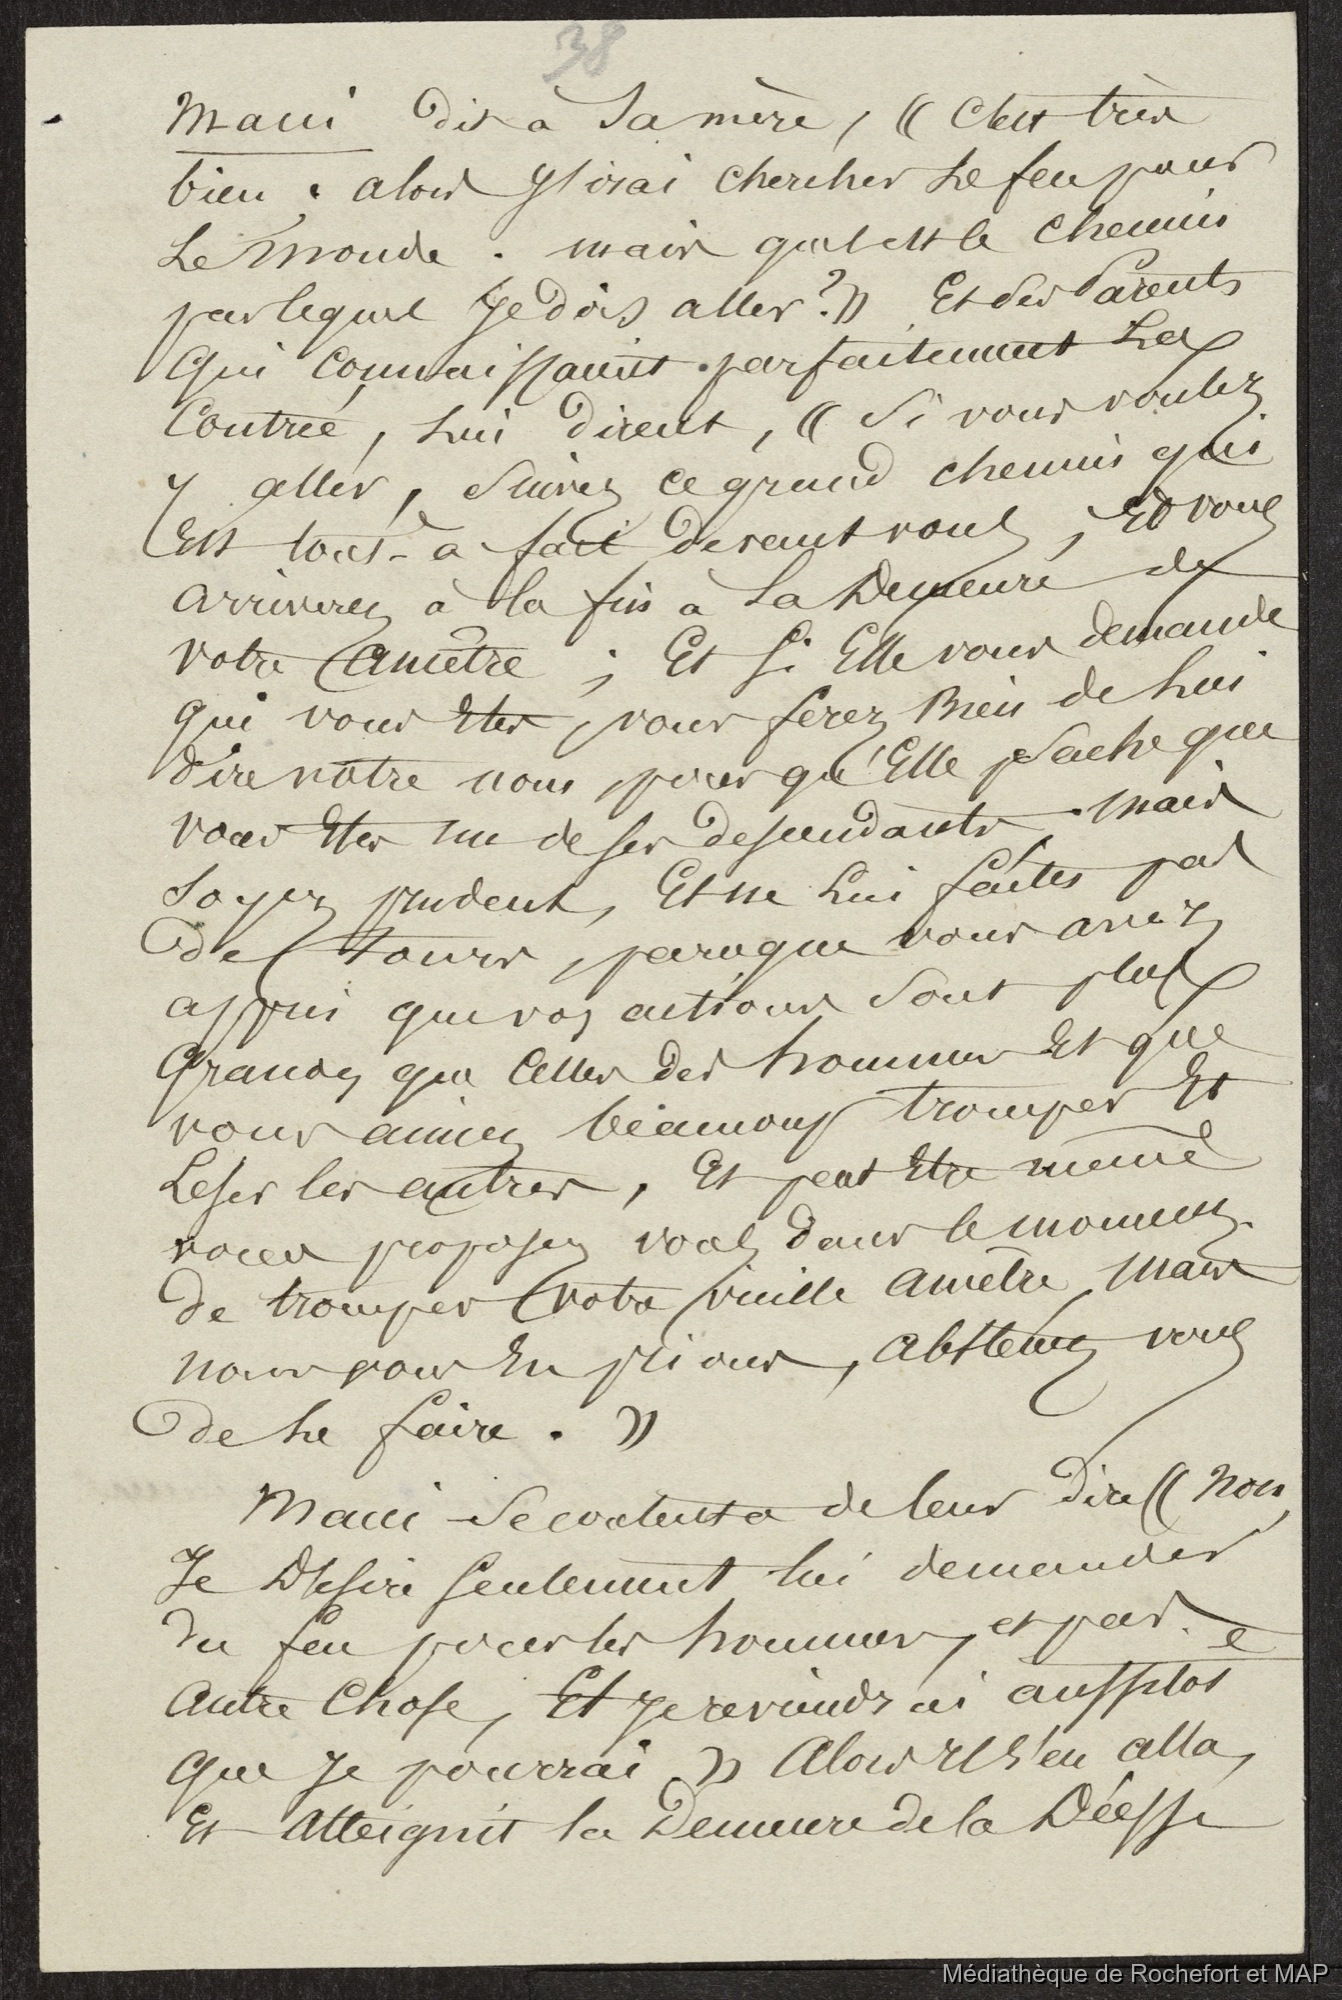 38
Maui dit à Sa mère, « C'est très
bien ; alors J'irai chercher Le feu pour
Le Monde . mais quel est le Chemin
par lequel Je dois aller ? » Et Ses Parents
Qui Connaissaient parfaitement La
Contrée, Lui dirent, « Si vous voulez
y aller, Suivez Ce grand chemin qui
Est tout-à fait devant vous, Et vous
arriverez à la fin à La Demeure de
votre Ancêtre ; Et Si Elle vous demande
qui vous Etes, vous ferez Bien de Lui
dire votre nom, pour qu'Elle Sache que
vous Etes un de Ses desendants. Mais
Soyez prudent, Et ne Lui faîtes pas
de tours, paroque vous avez
appris que vos actions Sont plus
Grandes que Celles des hommes Et que
vous aimez béaucoup tromper Et
Leser les autres, Et peut Etre même
vous proposez vous, dans le moment,
de tromper votre vieille Ancêtre, Mais
nous vous En prions, Abstenez vous
de Le faire . »
Maui Se contenta de leur dire « Non,
Je Désire Seulement lui demander
du feu pour les hommes, et pas
Autre Chose, Et Je reviendrai aussitot
Que Je pourrai » Alors Il S'en alla,
Et Atteignit la Demeure de la Déesse
Médiathèque de Rochefort et MAP